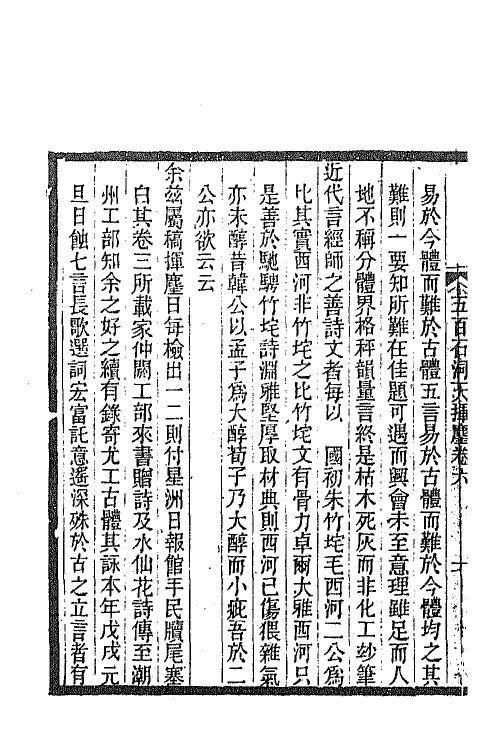 五百石洞天揮麈卷六
易於今體而難於古體五言易於古體而難於今體均之其
難則一要知所難在佳題可遇而興會未至意理雖足而人
地不稱分體界格秤韻量言終是枯木死灰而非化工妙筆
近代言經師之善詩文者每以 國初朱竹垞毛西河二公爲
比其實西河非竹垞之比竹垞文有骨力卓爾大雅西河只
是善於馳騁竹垞詩淵雅堅厚取材典則西河已傷猥雜氣
亦未醇昔韓公以孟子爲大醇荀子乃大醇而小疵吾於二
公亦欲云云
余兹屬稿揮麈日每檢出一二則付星洲日報館手民牘尾塞
白其卷三所載家仲閼工部來書贈詩及水仙花詩傳至潮
州工部知余之好之續有錄寄尤工古體其詠本年戊戌元
旦日蝕七言長歌選詞宏富託意遙深殊於古之立言者有